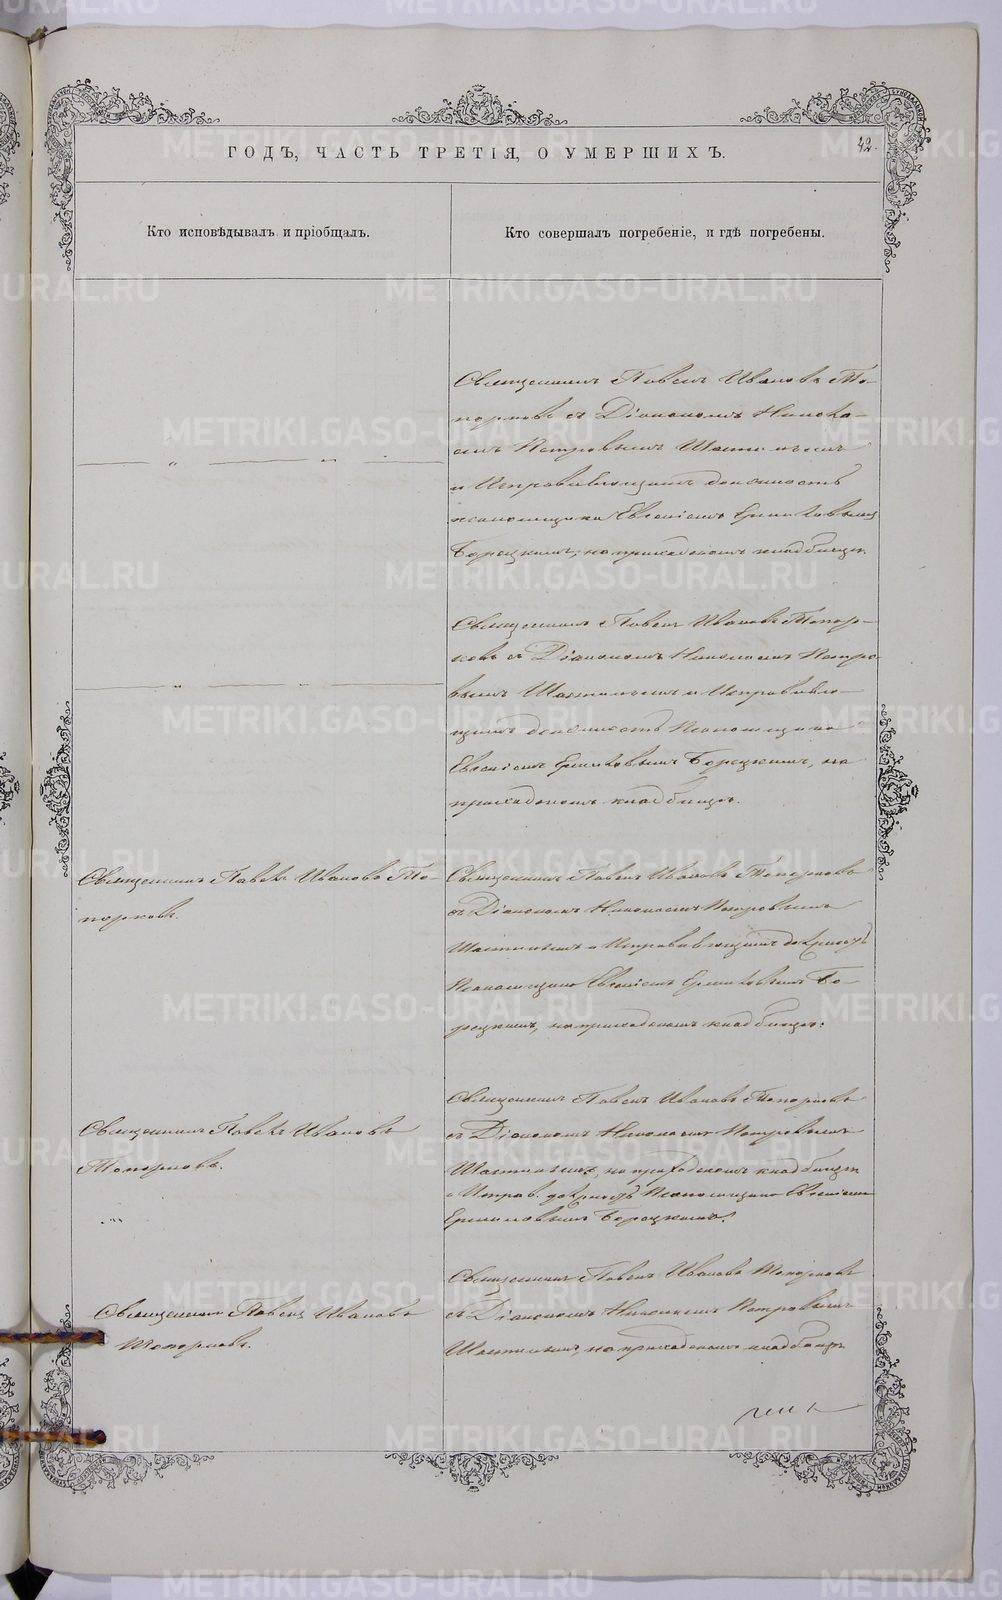 42.
ГОДЪ, ЧАСТЬ ТРЕТІЯ, О УМЕРШИХЪ.
Кто исповѣдывалъ и пріобщалъ.
Кто совершалъ погребеніе, и гдѣ погребены.
Священникъ Павелъ Ивановъ То-
порковъ съ Діакономъ Никола-
емъ Петровымъ
и Исправляющимъ должность
псаломщика Евгеніемъ Ермиловымъ
Борецкимъ, на приходскомъ кладбищѣ.
Священникъ Павелъ Ивановъ Топор-
ковъ съ Діакономъ Николаемъ Петро-
вымъ и Исправляю-
щимъ должность Псаломщика
Евгеніемъ Ермиловымъ Борецкимъ, на
приходскомъ кладбищѣ.
Священникъ Павелъ Ивановъ То-
порковъ.
Священникъ Павелъ Ивановъ Топорковъ
съ Діакономъ Николаемъ Петровымъ
и Исправляющимъ
Псаломщика Евгеніемъ Ермиловымъ Бо-
рецкимъ, на приходскомъ кладбищѣ.
Священникъ Павелъ Ивановъ
Топорковъ.
Священникъ Павелъ Ивановъ Топорковъ
съ Діакономъ Николаемъ Петровымъ
на приходскомъ кладбищѣ
и Исправ. Псаломщика Евгеніемъ
Ермиловымъ Борецкимъ.
Священникъ Павелъ Ивановъ
Топорковъ.
Священникъ Павелъ Ивановъ Топорковъ
съ Діакономъ Николаемъ Петровымъ
на приходскомъ кладбищѣ
METRIKI.GASO-URAL.RU